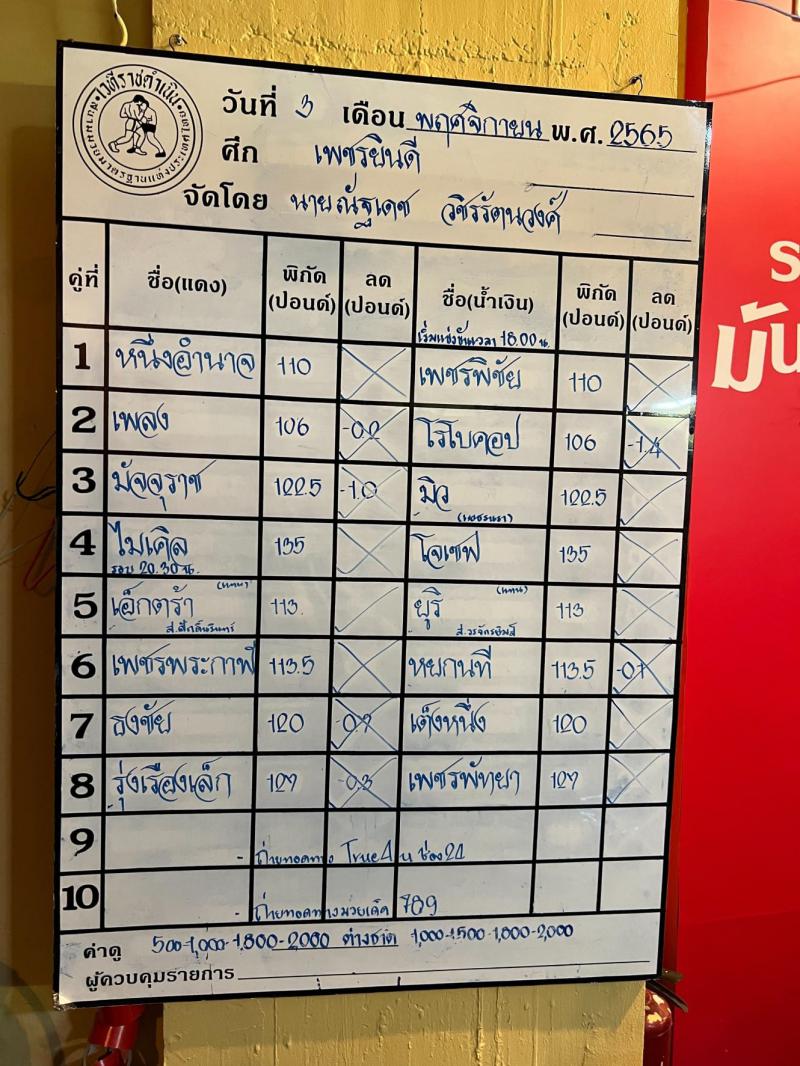 เวทีราชดำเนิน
สนามมวยมาตรฐานแห่งประเทศไทย
วันที่ 3 เดือน พฤศจิกายน พ.ศ. 2565
ศึก เพชรยินดี
จัดโดย นายณัฐเดช วชิรรัตนวงศ์
คู่ที่ ชื่อ(แดง) พิกัด (ปอนด์) ลด (ปอนด์) ชื่อ(น้ำเงิน) พิกัด (ปอนด์) ลด (ปอนด์)
เริ่มแข่งขันเวลา 18.00 น.
1 หนึ่งอำนาจ 110 เพชรพิชัย 110
2 เพลง 106 -0.2 โรโบคอป 106 -1.4
3 มัจจุราช 122.5 -1.0 มิว 122.5
4 ไมเคิล 135 โจเซฟ 135
รอบ 20.30 น.
5 เอ็กตร้า (แทน) 113 ยูริ (แทน) 113
6 เพชรพระกาฬ 113.5 หยกนที 113.5 -0.1
7 ธงชัย 120 เต็งหนึ่ง 120
8 รุ่งเรืองเล็ก 127 -0.3 เพชรพัทยา 127
9 - ถ่ายทอดทาง True4U ช่อง24
10 - ถ่ายทอดทางมวยเด็ด 789
ค่าดู 500-1,000-1,800-2,000 ต่างชาติ 1,000-1,500-1,800-2,000
ผู้ควบคุมรายการ
มัน